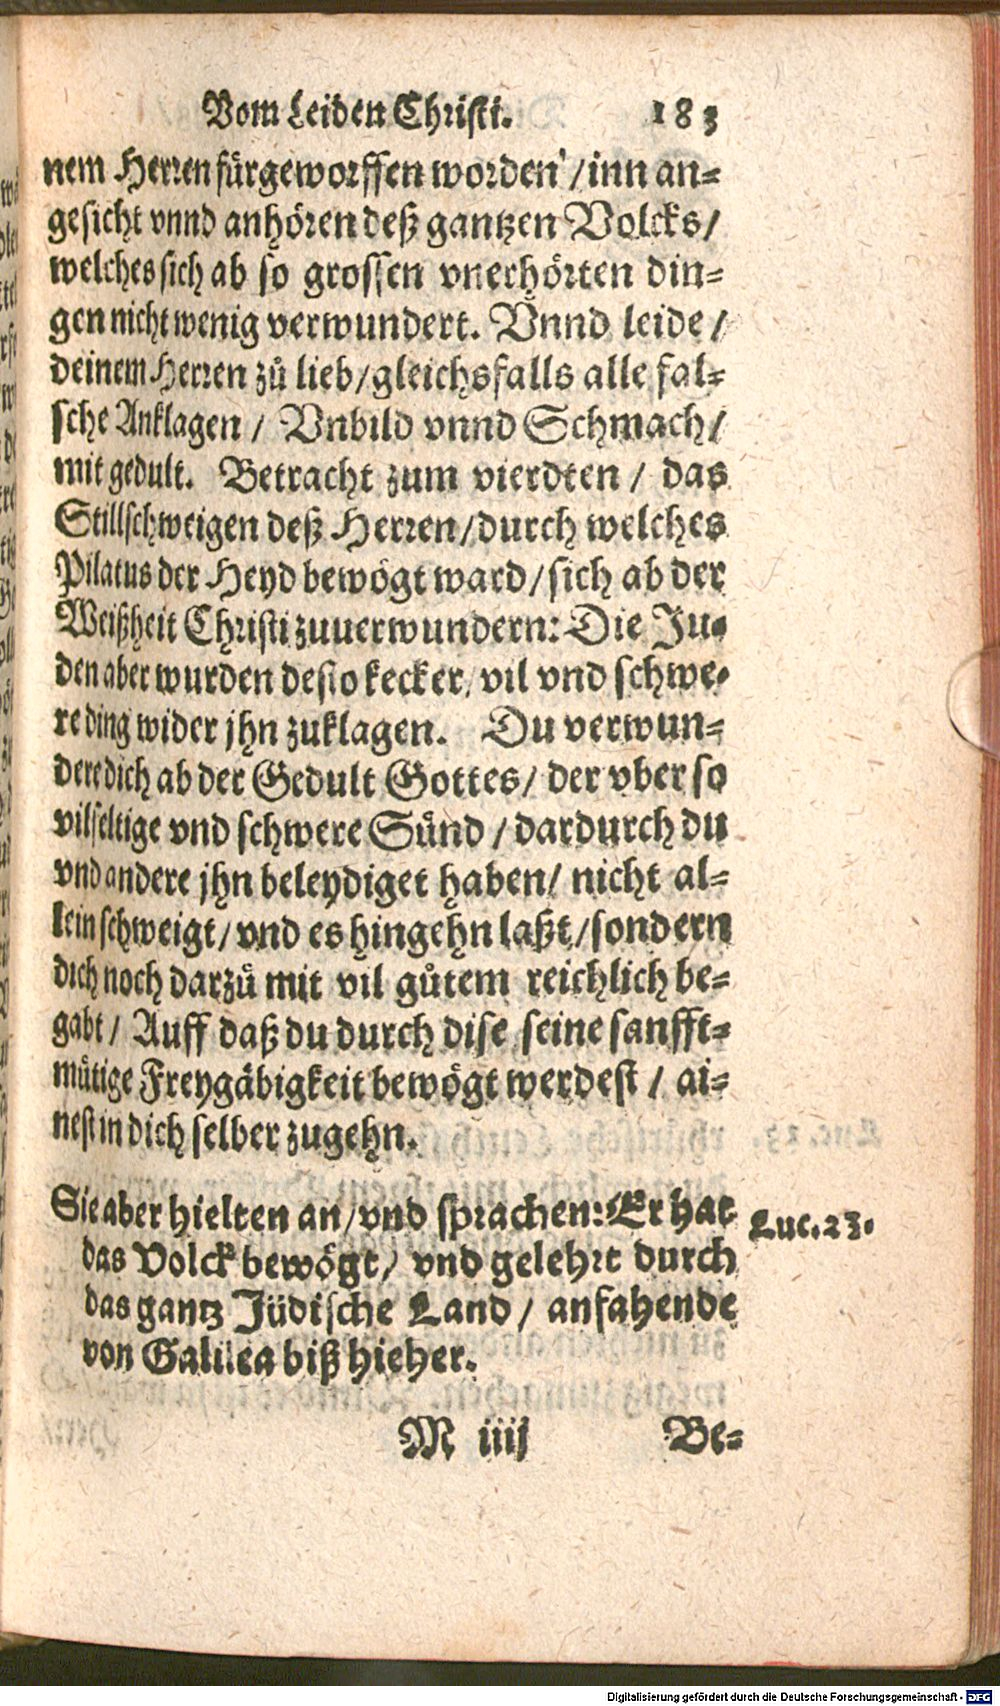 Vom Leiden Christi. 183
nem Herren fürgeworffen worden / inn an-
gesicht vnnd anhören deß gantzen Volcks /
welches sich ab so grossen vnerhörten din-
gen nicht wenig verwundert. Vnnd leide /
deinem Herren zů lieb / gleichsfalls alle fal-
sche Anklagen / Vnbild vnnd Schmach /
mit gedult. Betracht zum vierdten / das
Stillschweigen deß Herren / durch welches
Pilatus der Heyd bewögt ward / sich ab der
Weißheit Christi zuuerwundern: Die Ju-
den aber wurden desto kecker, vil vnd schwe-
re ding wider jhn zuklagen. Du verwun-
dere dich ab der Gedult Gottes / der vber so
vilfeltige vnd schwere Sünd / dardurch du
vnd andere jhn beleydiget haben / nicht al-
lein schweigt / vnd es hingehn laßt / sondern
dich noch darzů mit vil gůtem reichlich be-
gabt / Auff daß du durch dise seine sanfft-
mütige Freygäbigkeit bewögt werdest / ai-
nest in dich selber zugehn.
Sie aber hielten an / vnd sprachen: Er hat
das Volck bewögt / vnd gelehrt durch
das gantz Jüdische Land / anfahende
von Galilea biß hieher.
Luc. 23.
M iiij Be-
Digitalisierung gefördert durch die Deutsche Forschungsgemeinschaft - DFG